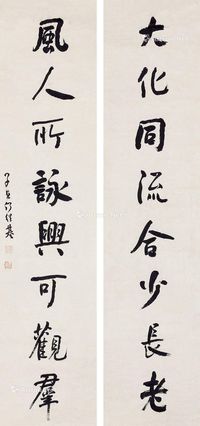 大化同流合少長老
風人所詠興可觀羣
子貞何紹基